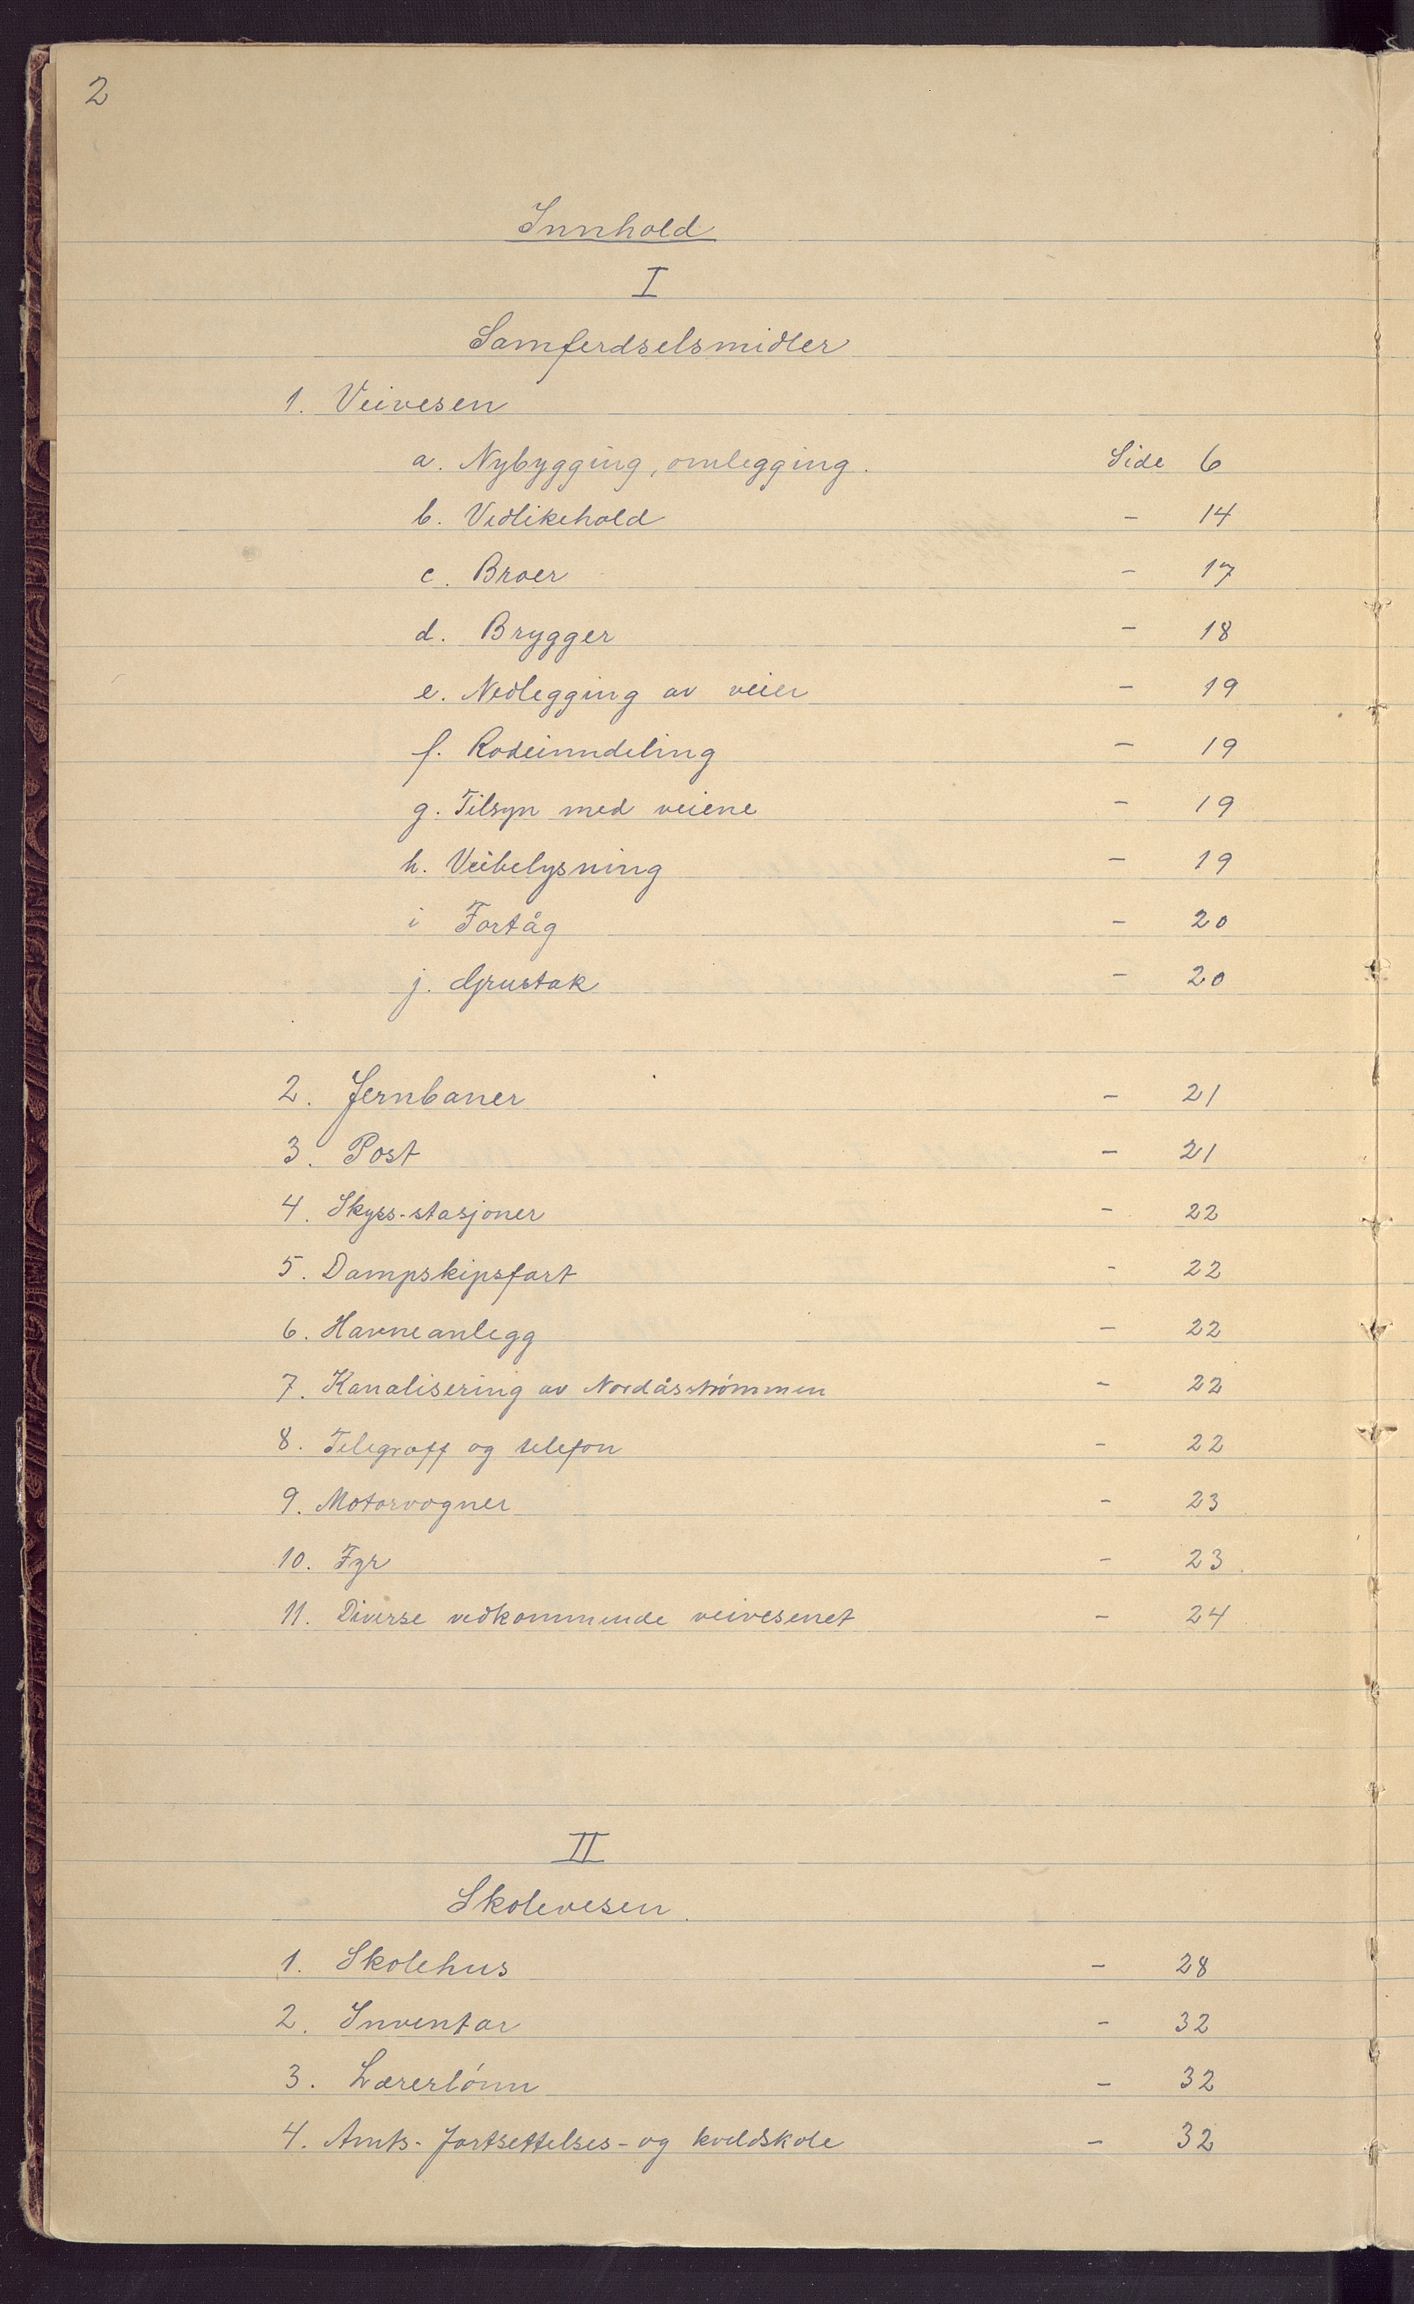 2
Innhold
I
Samferdselsmidler
1. Veivesen
a. Nybygging, omlegging. Side 6
b. Vedlikehold - 14
c. Broer - 17
d. Brygger - 18
e. Nedlegging av veier - 19
f. Rodeinndeling - 19
g. Tilsyn med veiene - 19
h. Veibelysning - 19
i Fortåg - 20
j. Grustak - 20
2. Jernbaner - 21
3. Post - 21
4. Skyss-stasjoner - 22
5. Dampskipsfart - 22
6. Havneanlegg - 22
7. Kanalisering av Nordåsstrømmen - 22
8. Telegraff og telefon - 22
9. Motorvogner - 23
10. Fyr - 23
11. Diverse vedkommende veivesenet - 24
II
Skolevesen.
1. Skolehus - 28
2. Inventar - 32
3. Lærerlønn - 32
4. Amts- fortsettelses- og kveldskole - 32